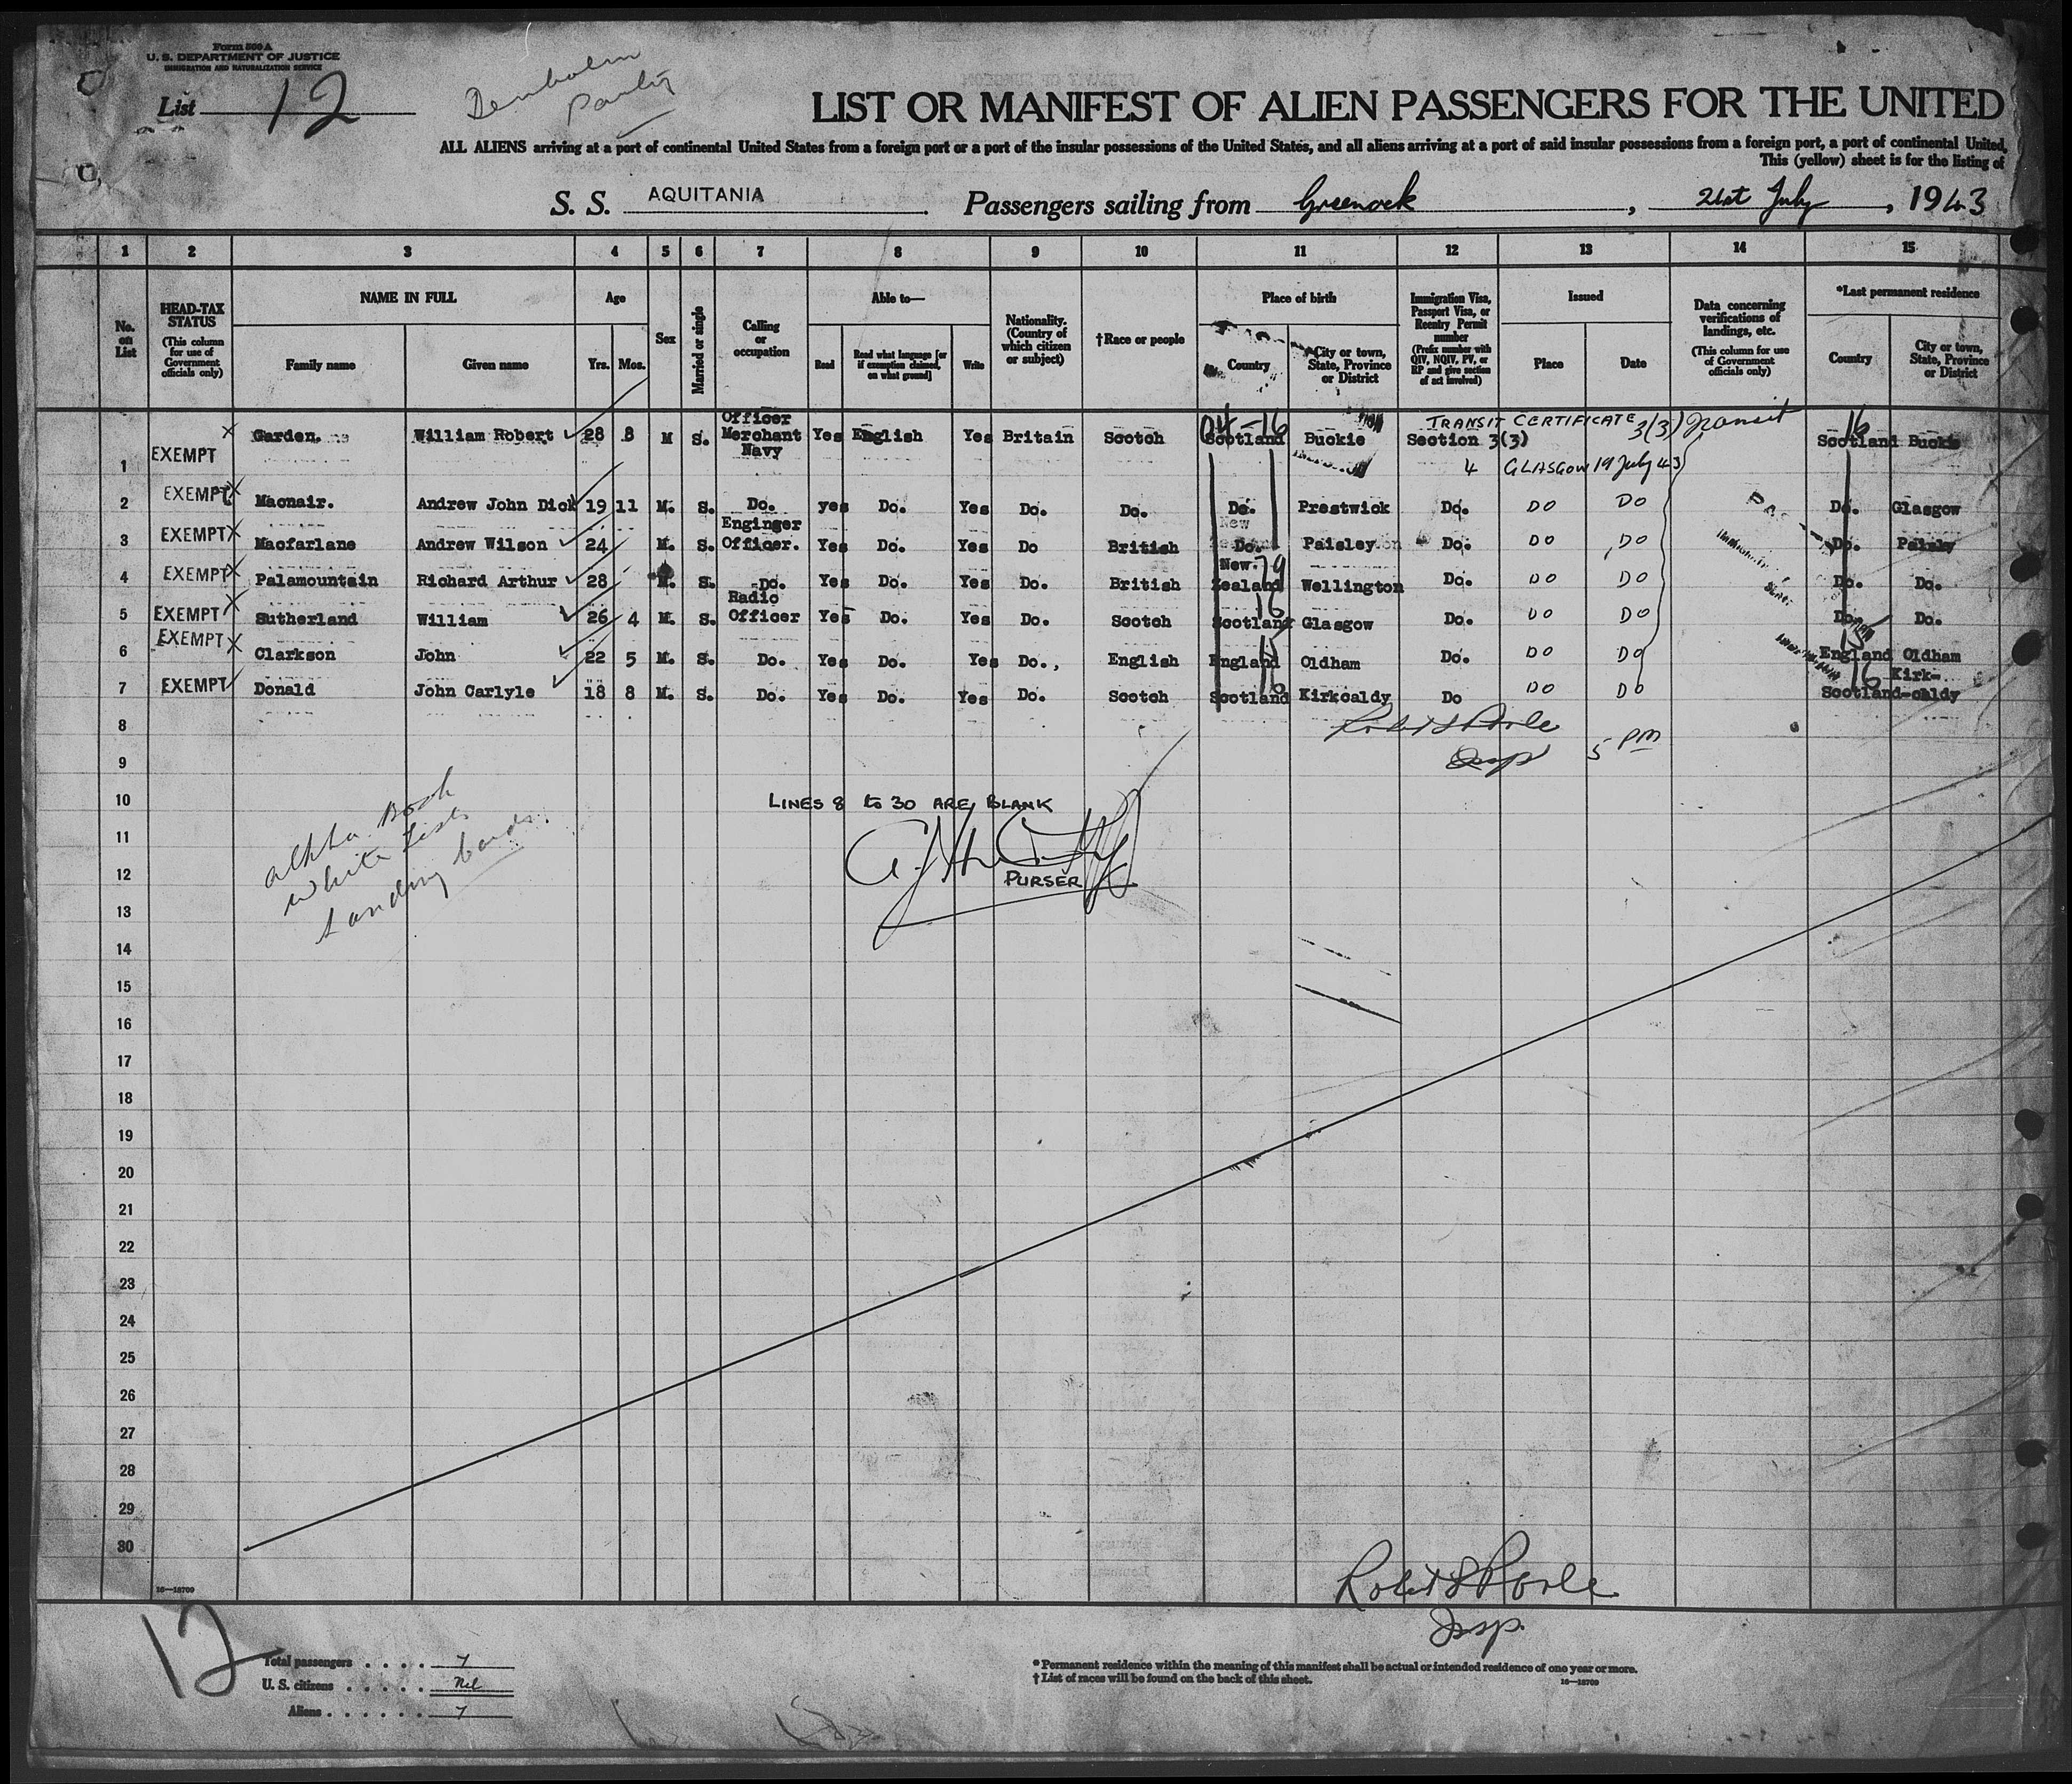 Form 500 A
U. S. DEPARTMENT OF JUSTICE
IMMIGRATION AND NATURALIZATION SERVICE
List 12
Denholm
Party
LIST OR MANIFEST OF ALIEN PASSENGERS FOR THE UNITED
ALL ALIENS arriving at a port of continental United States from a foreign port or a port of the insular possessions of the United States, and all aliens arriving at a port of said insular possessions from a foreign port, a port of continental United
This (yellow) sheet is for the listing of
S. S. AQUITANIA Passengers sailing from Greenock , 21st July , 1943
1 2 3 4 5 6 7 8 9 10 11 12 13 14 15
No. on List
HEAD-TAX STATUS (This column for use of Government officials only)
NAME IN FULL Family name Given name
Age Yrs. Mos.
Sex
Married or single
Calling or occupation
Able to— Read Read what language [or if exemption claimed, on what ground] Write
Nationality. (Country of which citizen or subject)
†Race or people
Place of birth Country City or town, State, Province or District
Immigration Visa, Passport Visa, or Reentry Permit number (Prefix number with QIV, NQIV, PV, or RP and give section of act involved)
Issued Place Date
Data concerning verifications of landings, etc. (This column for use of Government officials only)
*Last permanent residence Country City or town, State, Province or District
TRANSIT CERTIFICATE 3(3) Transit
1 EXEMPT Garden. William Robert 28 8 M S. Officer Merchant Navy Yes English Yes Britain Scotch 04-16 Scotland Buckie Section 3(3) 16 Scotland Buckie
4 GLASGOW 19 July 43
2 EXEMPT Macnair. Andrew John Dick 19 11 M. S. Do. yes Do. Yes Do. Do. Do. Prestwick Do. DO DO Do. Glasgow
3 EXEMPT Macfarlane Andrew Wilson 24 M. S. Enginger Officer. Yes Do. Yes Do British Do. Paisley Do. DO DO Do. Paisly
4 EXEMPT Palamountain Richard Arthur 28 M. S. Do. Yes Do. Yes Do. British New Zealand 79 Wellington Do. DO DO Do. Do.
5 EXEMPT Sutherland William 26 4 M. S. Radio Officer Yes Do. Yes Do. Scotch 16 Scotland Glasgow Do. DO DO Do. Do.
6 EXEMPT Clarkson John 22 5 M. S. Do. Yes Do. Yes Do., English 15 England Oldham Do. DO DO 15 England Oldham
7 EXEMPT Donald John Carlyle 18 8 M. S. Do. Yes Do. Yes Do. Scotch 16 Scotland Kirkcaldy Do DO DO 16 Scotland Kirk-caldy
8
Robert S Poole
Insp 5 PM
9
10
LINES 8 to 30 ARE BLANK
alpha Book
white Lists
Landing Cards.
11
12
PURSER
13
14
15
16
17
18
19
20
21
22
23
24
25
26
27
28
29
30
16—18709
Robert S Poole
Insp.
12
Total passengers . . . . 7
U. S. citizens . . . . . Nil
Aliens . . . . . . 7
* Permanent residence within the meaning of this manifest shall be actual or intended residence of one year or more.
† List of races will be found on the back of this sheet.
16—18709